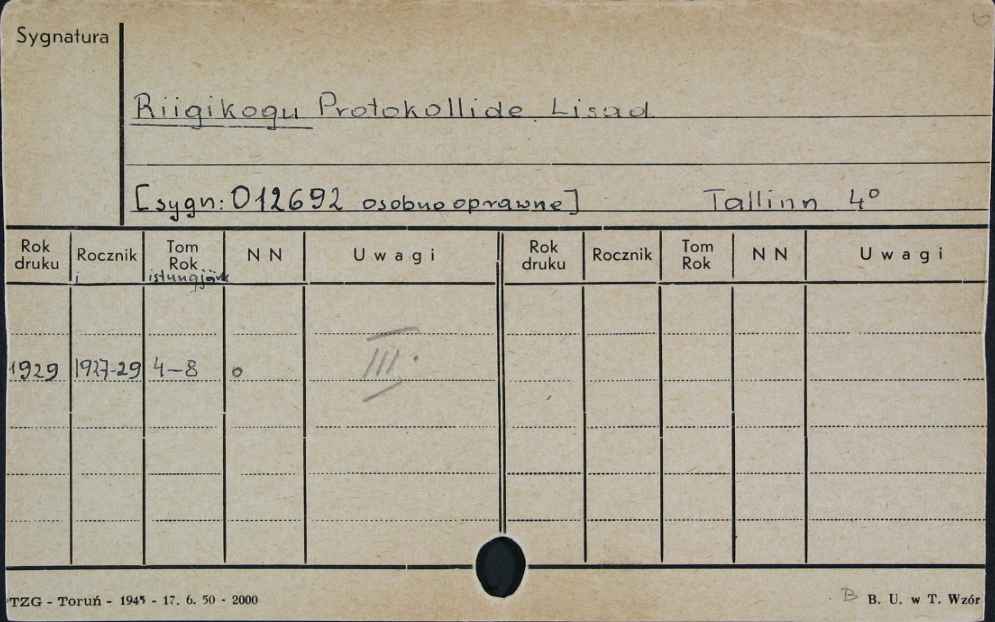 Sygnatura
Riigikogu Protokollide Lisad.
[sygn: 012692 osobno oprawne] Tallinn 4°
Rok druku Rocznik i Tom Rok istungjärk N N Uwagi Rok druku Rocznik Tom Rok N N Uwagi
1929 1927-29 4-8 o III.
TZG - Toruń - 1945 - 17. 6. 50 - 2000 B B. U. w T. Wzór